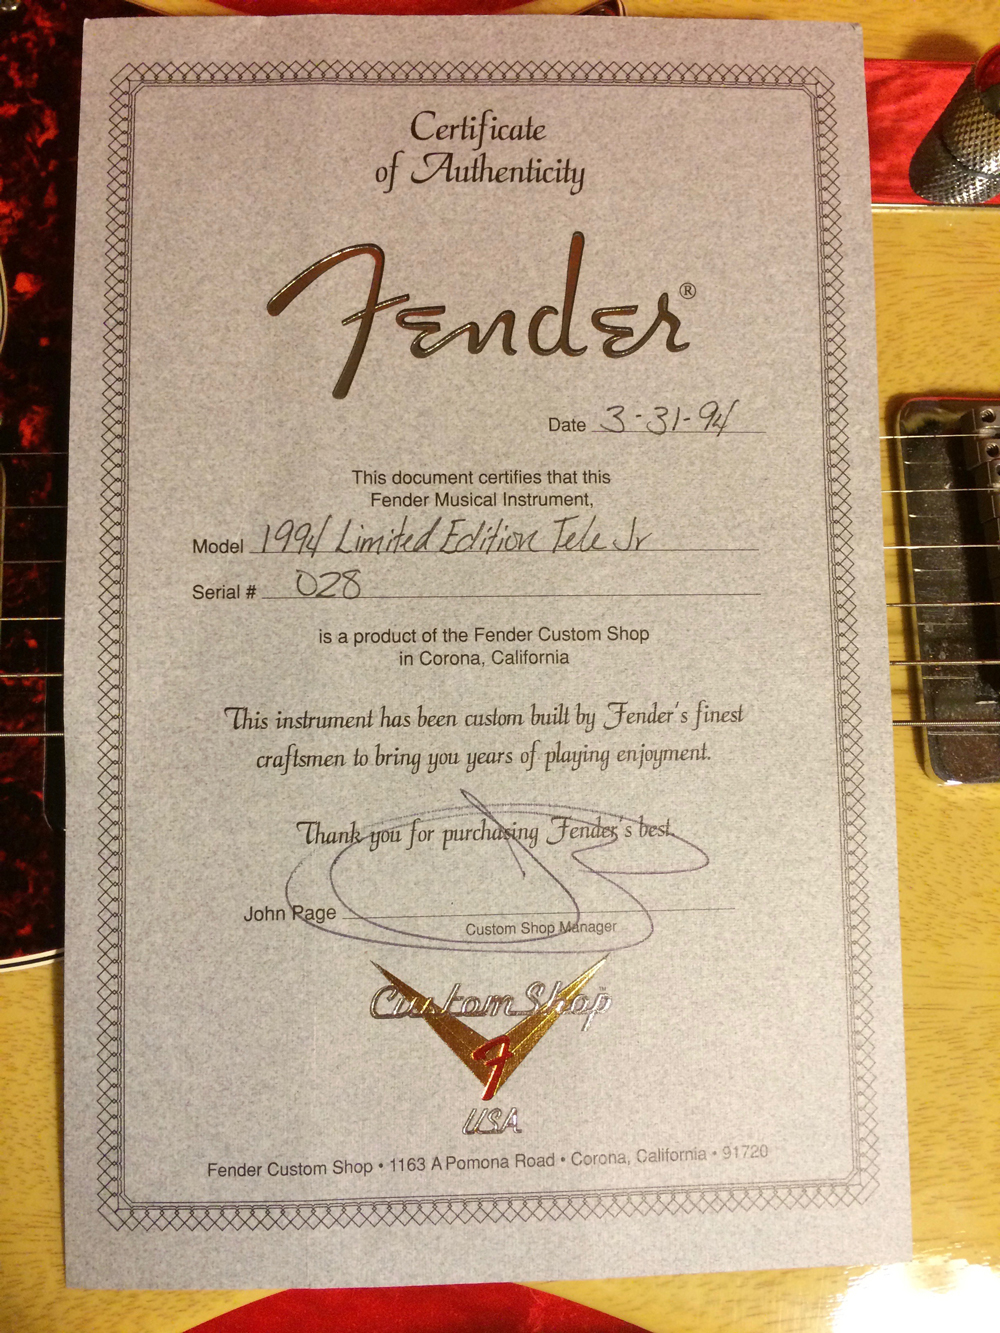 Certificate
of Authenticity
Fender®
Date 3-31-94
This document certifies that this
Fender Musical Instrument,
Model 1994 Limited Edition Tele Jr
Serial # 028
is a product of the Fender Custom Shop
in Corona, California
This instrument has been custom built by Fender's finest
craftsmen to bring you years of playing enjoyment.
Thank you for purchasing Fender's best.
John Page
Custom Shop Manager
Custom Shop™
F
USA
Fender Custom Shop • 1163 A Pomona Road • Corona, California • 91720